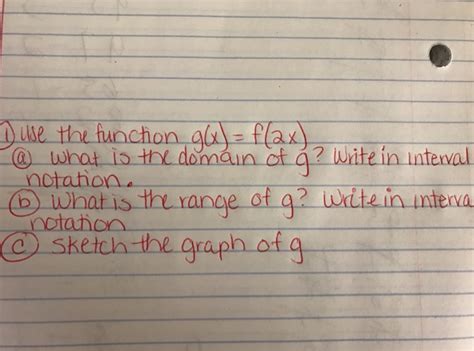 ① use the function g(x) = f(2x)
ⓐ what is the domain of g? Write in interval
notation.
ⓑ what is the range of g? Write in interva
notation
ⓒ sketch the graph of g